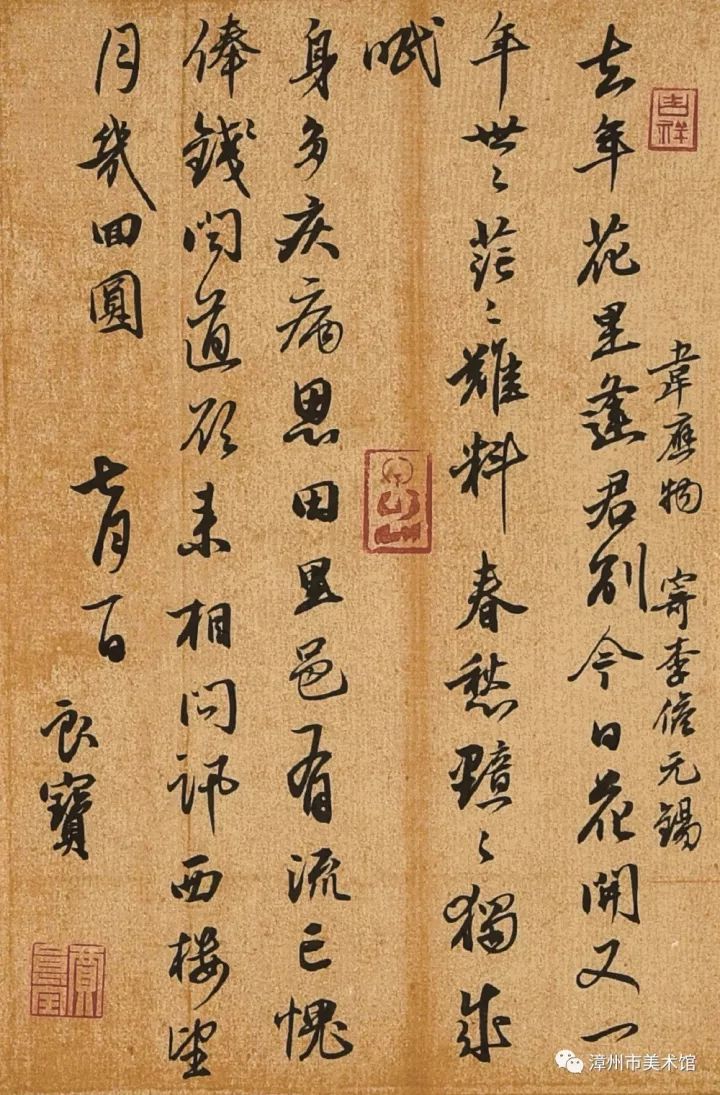 吉祥
韋應物 寄李儋元錫
去年花里逢君别今日花開又一
年世〻茫〻難料春愁黯〻獨成
眠
身多疾病思田里邑有流亡愧
俸錢聞道欲来相問訊西樓望
月幾回圓 七月一日
良寶
漳州市美术馆